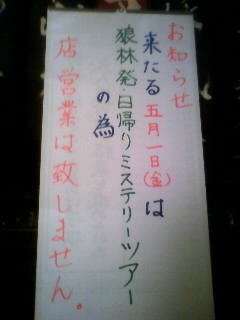 お知らせ
来たる五月一日(金)は
狼林発・日帰りミステリーツアー
の為
店営業は致しません。